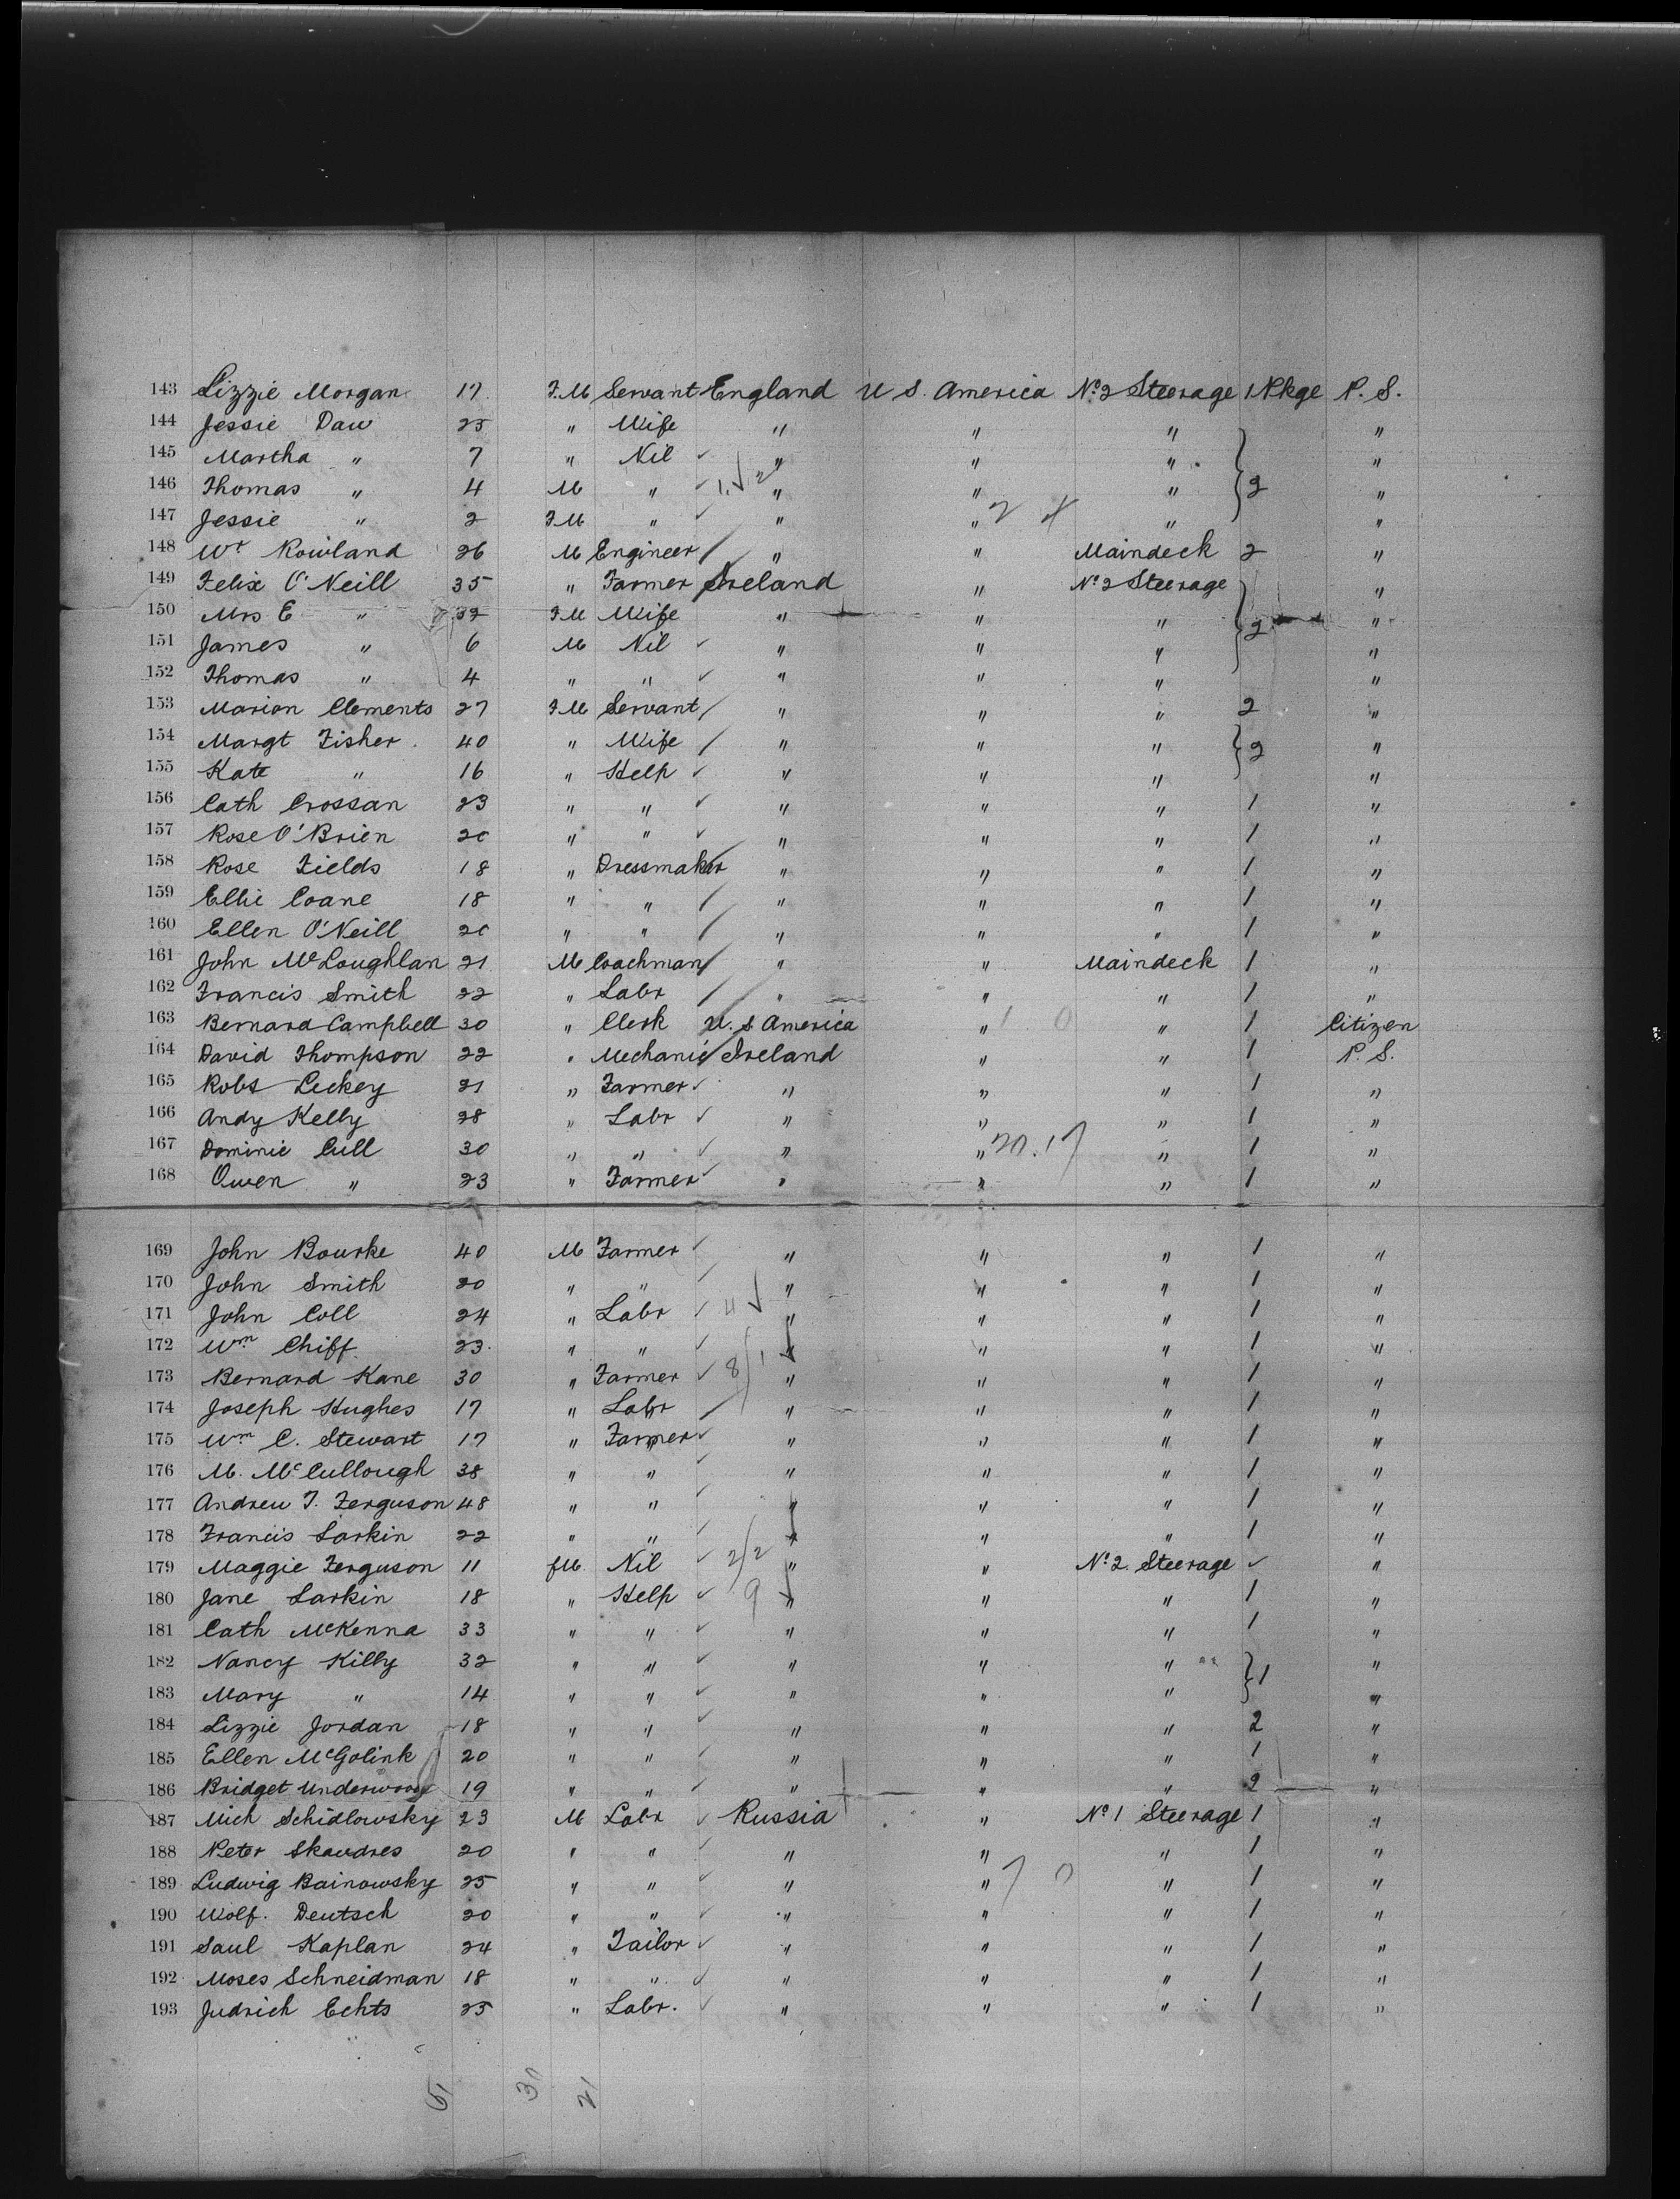 143 Lizzie Morgan 17 F.M Servant England U S. America No 2 Steerage 1 Pkge P. S.
144 Jessie Daw 25 " Wife " " " "
145 Martha " 7 " Nil " " " "
146 Thomas " 4 M " " " " } 2 "
147 Jessie " 2 F.M " " " " "
148 Wt Rowland 26 M Engineer " " Maindeck 2 "
149 Felix O'Neill 35 " Farmer Ireland " No 2 Steerage "
150 Mrs E " 32 F.M Wife " " " "
151 James " 6 M Nil " " " } 2 "
152 Thomas " 4 " " " " " "
153 Marion Clements 27 F.M Servant " " " 2 "
154 Margt Fisher. 40 " Wife " " " } 2 "
155 Kate " 16 " Help " " " "
156 Cath Crossan 23 " " " " " 1 "
157 Rose O'Brien 20 " " " " " 1 "
158 Rose Fields 18 " Dressmaker " " " 1 "
159 Ellie Coane 18 " " " " " 1 "
160 Ellen O'Neill 20 " " " " " 1 "
161 John McLoughlan 21 M Coachman " " Maindeck 1 "
162 Francis Smith 22 " Labr " " " 1 "
163 Bernard Campbell 30 " Clerk U. S America " " 1 Citizen
164 David Thompson 22 " Mechanic Ireland " " 1 P. S.
165 Robt Leckey 21 " Farmer " " " 1 "
166 Andy Kelly 28 " Labr " " " 1 "
167 Dominic Cull 30 " " " " 20.17 " 1 "
168 Owen " 23 " Farmer " " " 1 "
169 John Bourke 40 M Farmer " " " 1 "
170 John Smith 20 " " " " " 1 "
171 John Coll 24 " Labr " " " 1 "
172 Wm Chiff 23. " " " " " 1 "
173 Bernard Kane 30 " Farmer " " " 1 "
174 Joseph Hughes 17 " Labr " " " 1 "
175 Wm C. Stewart 17 " Farmer " " " 1 "
176 M. McCullough 38 " " " " " 1 "
177 Andrew T. Ferguson 48 " " " " " 1 "
178 Francis Larkin 22 " " " " " 1 "
179 Maggie Ferguson 11 fM. Nil " " No 2 Steerage ✓ "
180 Jane Larkin 18 " Help " " " 1 "
181 Cath McKenna 33 " " " " " 1 "
182 Nancy Killy 32 " " " " " } 1 "
183 Mary " 14 " " " " " "
184 Lizzie Jordan 18 " " " " " 2 "
185 Ellen McGolink 20 " " " " " 1 "
186 Bridget Underwood 19 " " " " " 2 "
187 Mich Schidlowsky 23 M Labr Russia " No 1 Steerage 1 "
188 Peter Skaudres 20 " " " " " 1 "
189 Ludwig Bainowsky 25 " " " " 7 0 " 1 "
190 Wolf. Deutsch 20 " " " " " 1 "
191 Saul Kaplan 24 " Tailor " " " 1 "
192 Moses Schneidman 18 " " " " " 1 "
193 Judrich Echts 25 " Labr. " " " 1 "